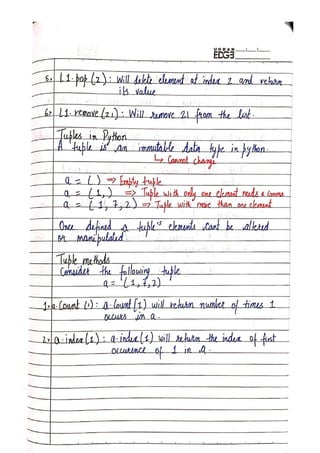 EDGE
5. L1.pop(2): Will delete element at index 2 and return
its value
6. L1.remove(21): Will remove 21 from the list.
Tuples in Python
A tuple is an immutable data type in python.
↳ Cannot change
a = () ⇒ Empty tuple
a = (1,) ⇒ Tuple with only one element needs a comma
a = (1, 7, 2) ⇒ Tuple with more than one element
Once defined a tuple's elements cant be altered
or manipulated.
Tuple methods
Consider the following tuple
a = (1, 7, 2)
1. a.Count(1): a.Count(1) will return number of times 1
occurs in a.
2. a.index(1): a.index(1) will return the index of first
occurence of 1 in a.